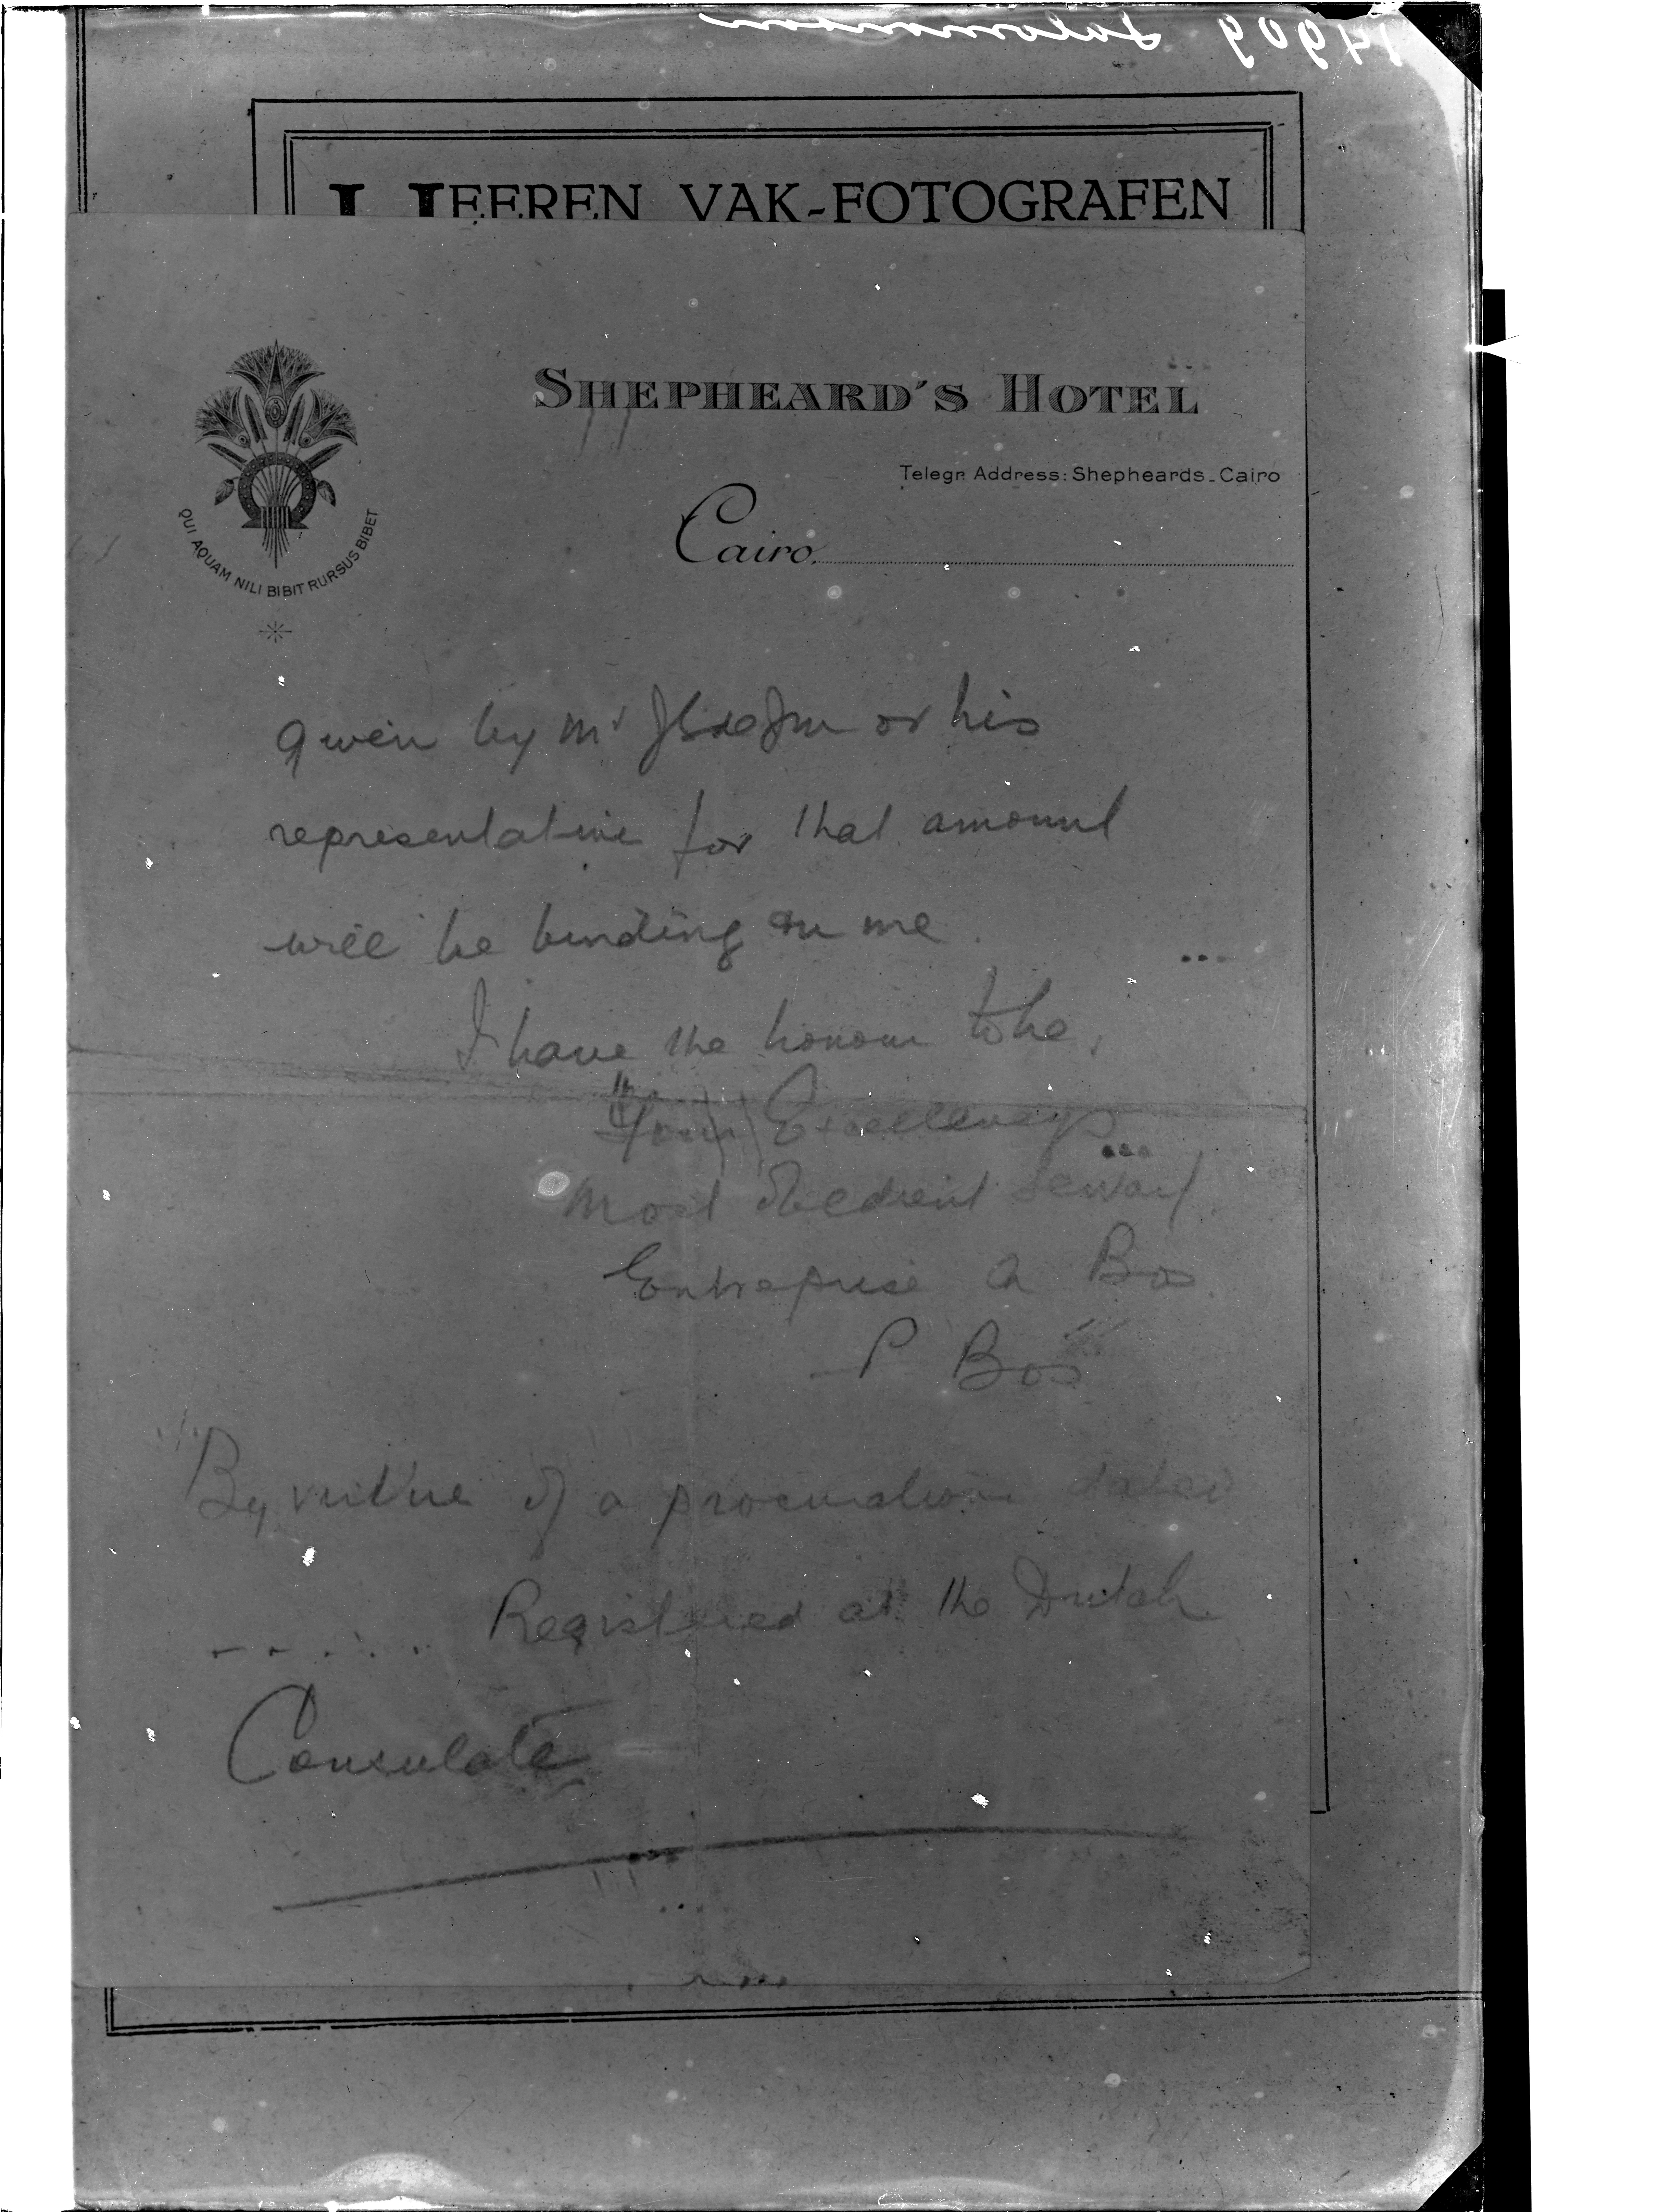 14909 Salomonson
HEEREN VAK-FOTOGRAFEN
SHEPHEARD'S HOTEL
Telegr. Address: Shepheards_Cairo
Cairo,
QUI AQUAM NILI BIBIT RURSUS BIBET
given by Mr or his
representative for that amount
will be binding on me.
I have the honour to be,
Your Excellency's
most obedient servant
Entreprise A Bos
P Bos
By virtue of a procuration dated
. . . . . . Registered at the Dutch
Consulate